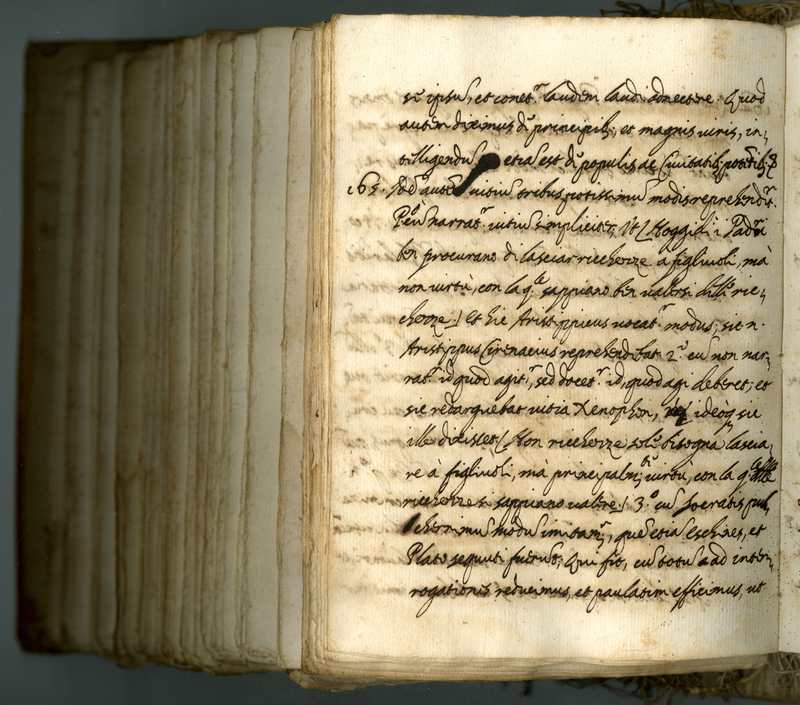 se ipsu, et conet.r laudem laudi adnectere. Quod
autem diximus d principib, et magnis viris, in,
telligendu etia est d populis ac Civitatib potetib.
165. Sed aute vitiu tribus potissimu modis reprehendit.r
P.o cu narrat.r vitiu simpliciter, Ut ( Hoggidì i Padri
ben procurano di lasciar ricchezze à figlivoli, mà
non virtù, con la q.le sappiano ben valersi delle ric,
chezze.) et hic Aristippicus vocat.r modus, sic n.
Aristippus Cirenaeius reprehendebat. 2.o cu non nar,
rat.r id quod agit.r, sed docet.r id, quod agi deberet; et
sic redarguebat vitia Xenophon, ideoq sic
ille dixisset ( Non ricchezze sol.o bisogna lascia,
re à figlivoli, mà principalm.te virtù, con la q.le delle
ricchezze si sappiano valere.) 3.o cu Socratis pul,
cherrimu modu imitam.r, que etia Eschines, et
Plato sequuti fuerut; Qui fit, cu totu ad inter,
rogationis reducimus, et paulatim efficimus, ut